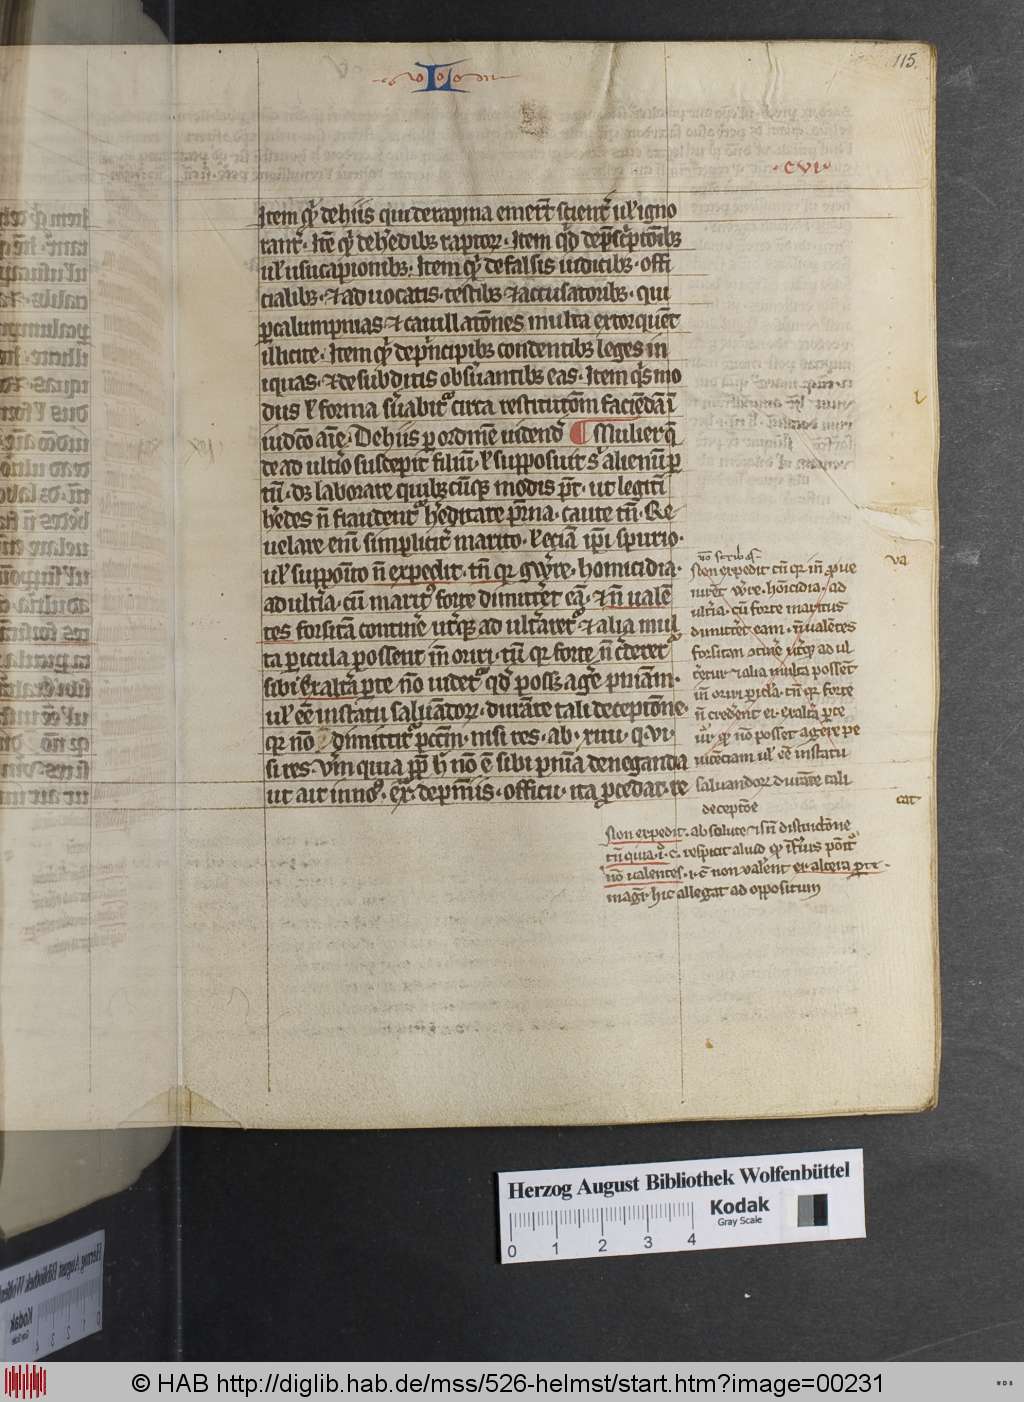 ·L·
115.
·CVI·
Item qr̃ de hiis qui de rapina emerĩt scienter̃ ul' igno
ranter̃. Itẽ qr̃ de h̃edibꝫ raptoꝝ. Item qd̃ de p̃sc̃ptõibꝫ
ul' usucapionibꝫ. Item qr̃ de falsis iudicibꝫ. offi
cialibꝫ. ⁊ aduocatis. testibꝫ ⁊ accusatoribꝫ. qui
ꝑ calumpnias ⁊ cauillatõnes multa extorquẽt
illicite. Item qr̃ de p̃ncipibꝫ condentibꝫ leges in
iquas. ⁊ de subditis obsẽuantibꝫ eas. Item q̃s mo
dus ul' forma s̃uabitᷣ circa restitutõm faciẽdã ĩ
iudic̃o aĩe. De hiis ꝑ ordinẽ uidend̃ ¶ Mulier q̃
de adult̃io suscepit filiũ. ul' supposuit s̃ alienũ ꝑ
tũ. dꝫ laborare quibꝫcũqꝫ modis põt. ut legitĩ
h̃edes ñ fraudentᷣ h̃editate pr̃na. caute tñ. Re
uelare enĩ simplicit̃ marito. ul' eciã ip̃i spurio.
ul' supposito ñ expedit. tñ qr gũere. homicidia.
adult̃ia. cũ maritᷣ forte dimitteret eã. ⁊ ñ ualẽ
tes forsitã continẽ uterqꝫ adult̃aretᷣ ⁊ alia mul
ta pericula possent inõ oriri. tũ qr forte ñ c̃deretᷣ
sibi. Ex alt̃a parte nõ uidetᷣ qd̃ possꝫ agẽ pniam.
ul' ẽe in statu saluãdoꝝ. durãte tali deceptõne.
qr nõ dimittitᷣ pcc̃m. nisi res. ab. xiiii. q. vi.
si res. Vm̃ quia ꝓp̃ h̃ nõ ẽ sibi pnĩa deneganda
ut ait innoᷣ. ex̃. de p̃miis. officii. ita ꝓcedat. re
nõ scribas
Non expedit tũ qr in ꝓ ue
niret gũere. hõicidia. ad
ult̃ia. cũ forte maritus
dimitteret eam. ñ ualentes
forsitan ɔtinẽ uterqꝫ adul
t̃etur ⁊ alia multa possẽt
in oriri ꝑicl'a. tũ qr forte
ñ credẽnt ei. ex alt̃a ꝑte
ur̃ qr nõ posset agere pe
nitẽciam ul' ẽe in statu
saluandoꝝ durãte tali
deceptõe
va
cat
Non expedit. absolute ⁊ sñ distinctõne
tũ quia. i. c. respicit aliud qr ĩferius põitᷣ
nõ ualentes. i. c. non ualẽnt ex altera ꝑte.
magr̃ hic allegat ad oppositum
Herzog August Bibliothek Wolfenbüttel
0 1 2 3 4
Kodak
Gray Scale
© HAB http://diglib.hab.de/mss/526-helmst/start.htm?image=00231